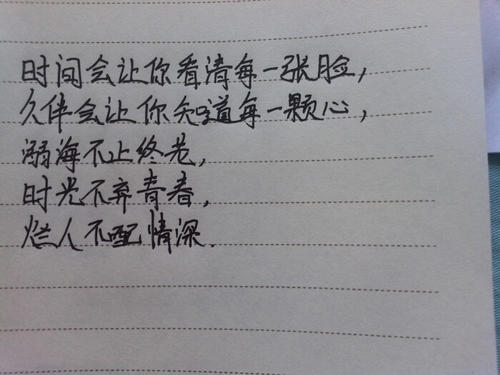 时间会让你看清每一张脸，
久伴会让你知道每一颗心，
溺海不止终老，
时光不弃青春，
烂人不配情深.